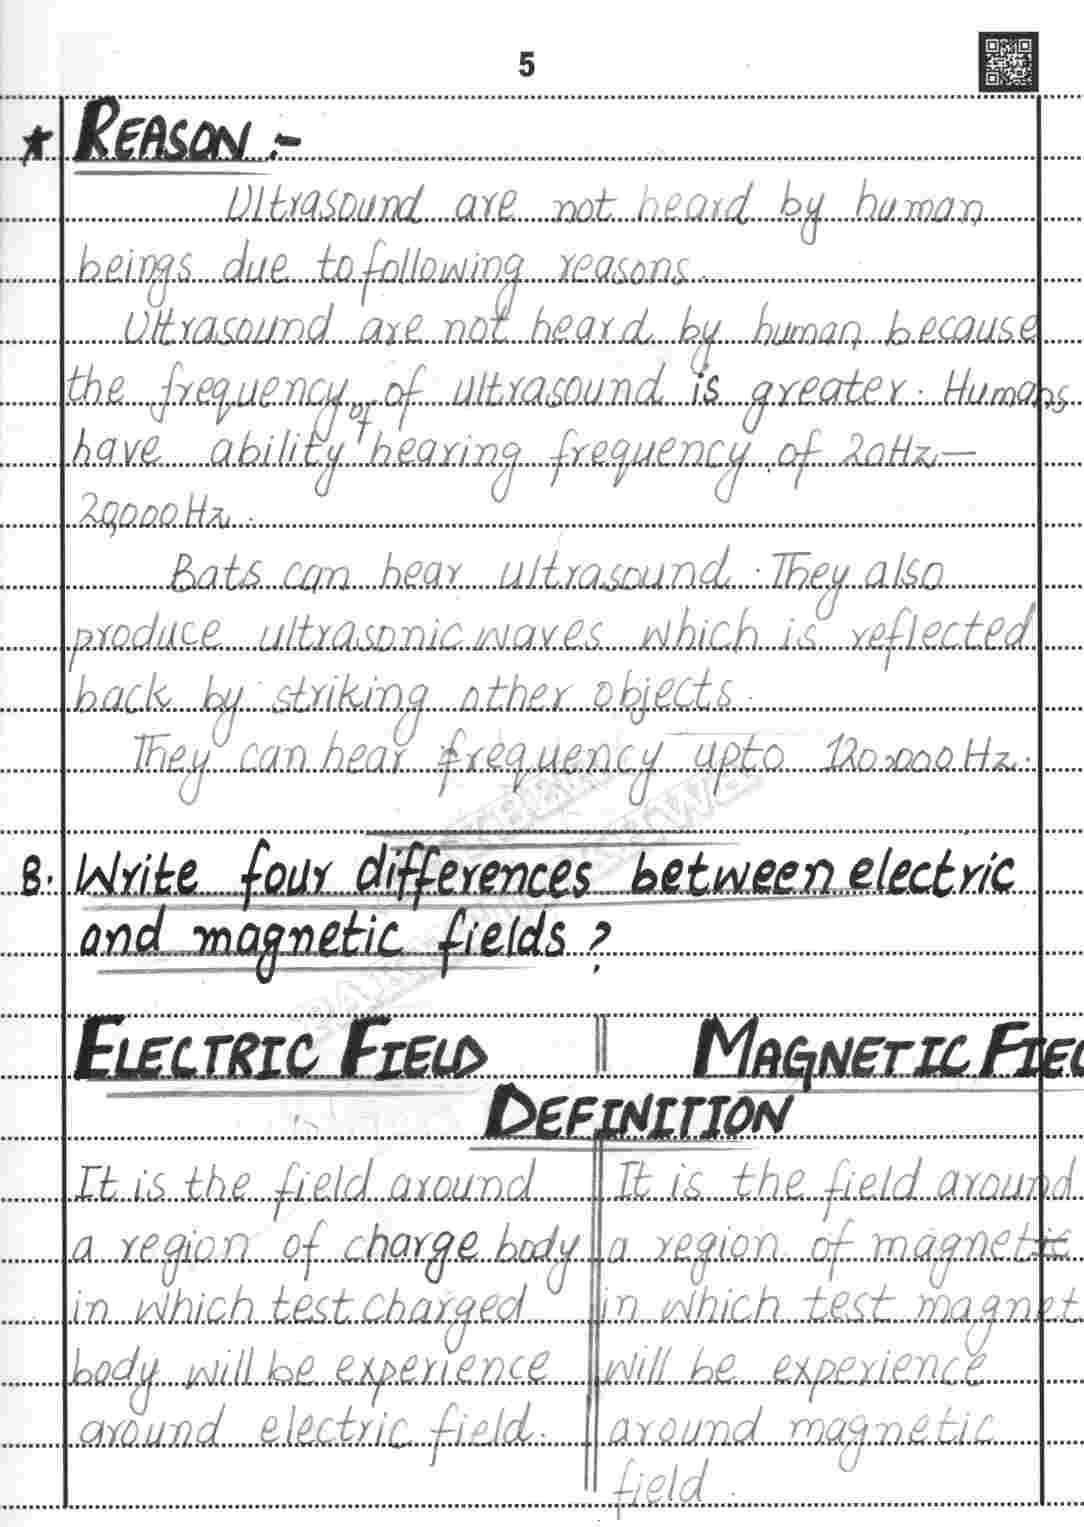 5
★ REASON :-
Ultrasound are not heard by human
beings due to following reasons.
Ultrasound are not heard by human because
the frequency of ultrasound is greater. Humans
have ability of hearing frequency of 20Hz—
20,000Hz.
Bats can hear ultrasound. They also
produce ultrasonic waves which is reflected
back by striking other objects.
They can hear frequency upto 120,000Hz.
8. Write four differences between electric
and magnetic fields ?
ELECTRIC FIELD MAGNETIC FIEL
DEFINITION
It is the field around It is the field around
a region of charge body a region of magnetic
in which test charged in which test magnet
body will be experience will be experience
around electric field. around magnetic
field.